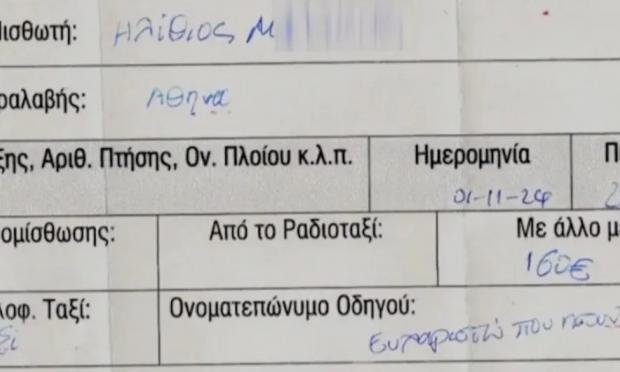 Μισθωτή: Ηλίθιος Μ
ραλαβής: Αθηνα
ξης, Αριθ. Πτήσης, Ον. Πλοίου κ.λ.π. Ημερομηνία Π
01-11-24 2
ομίσθωσης: Από το Ραδιοταξί: Με άλλο μ
160€
λοφ. Ταξί: Ονοματεπώνυμο Οδηγού:
ευχαριστώ που